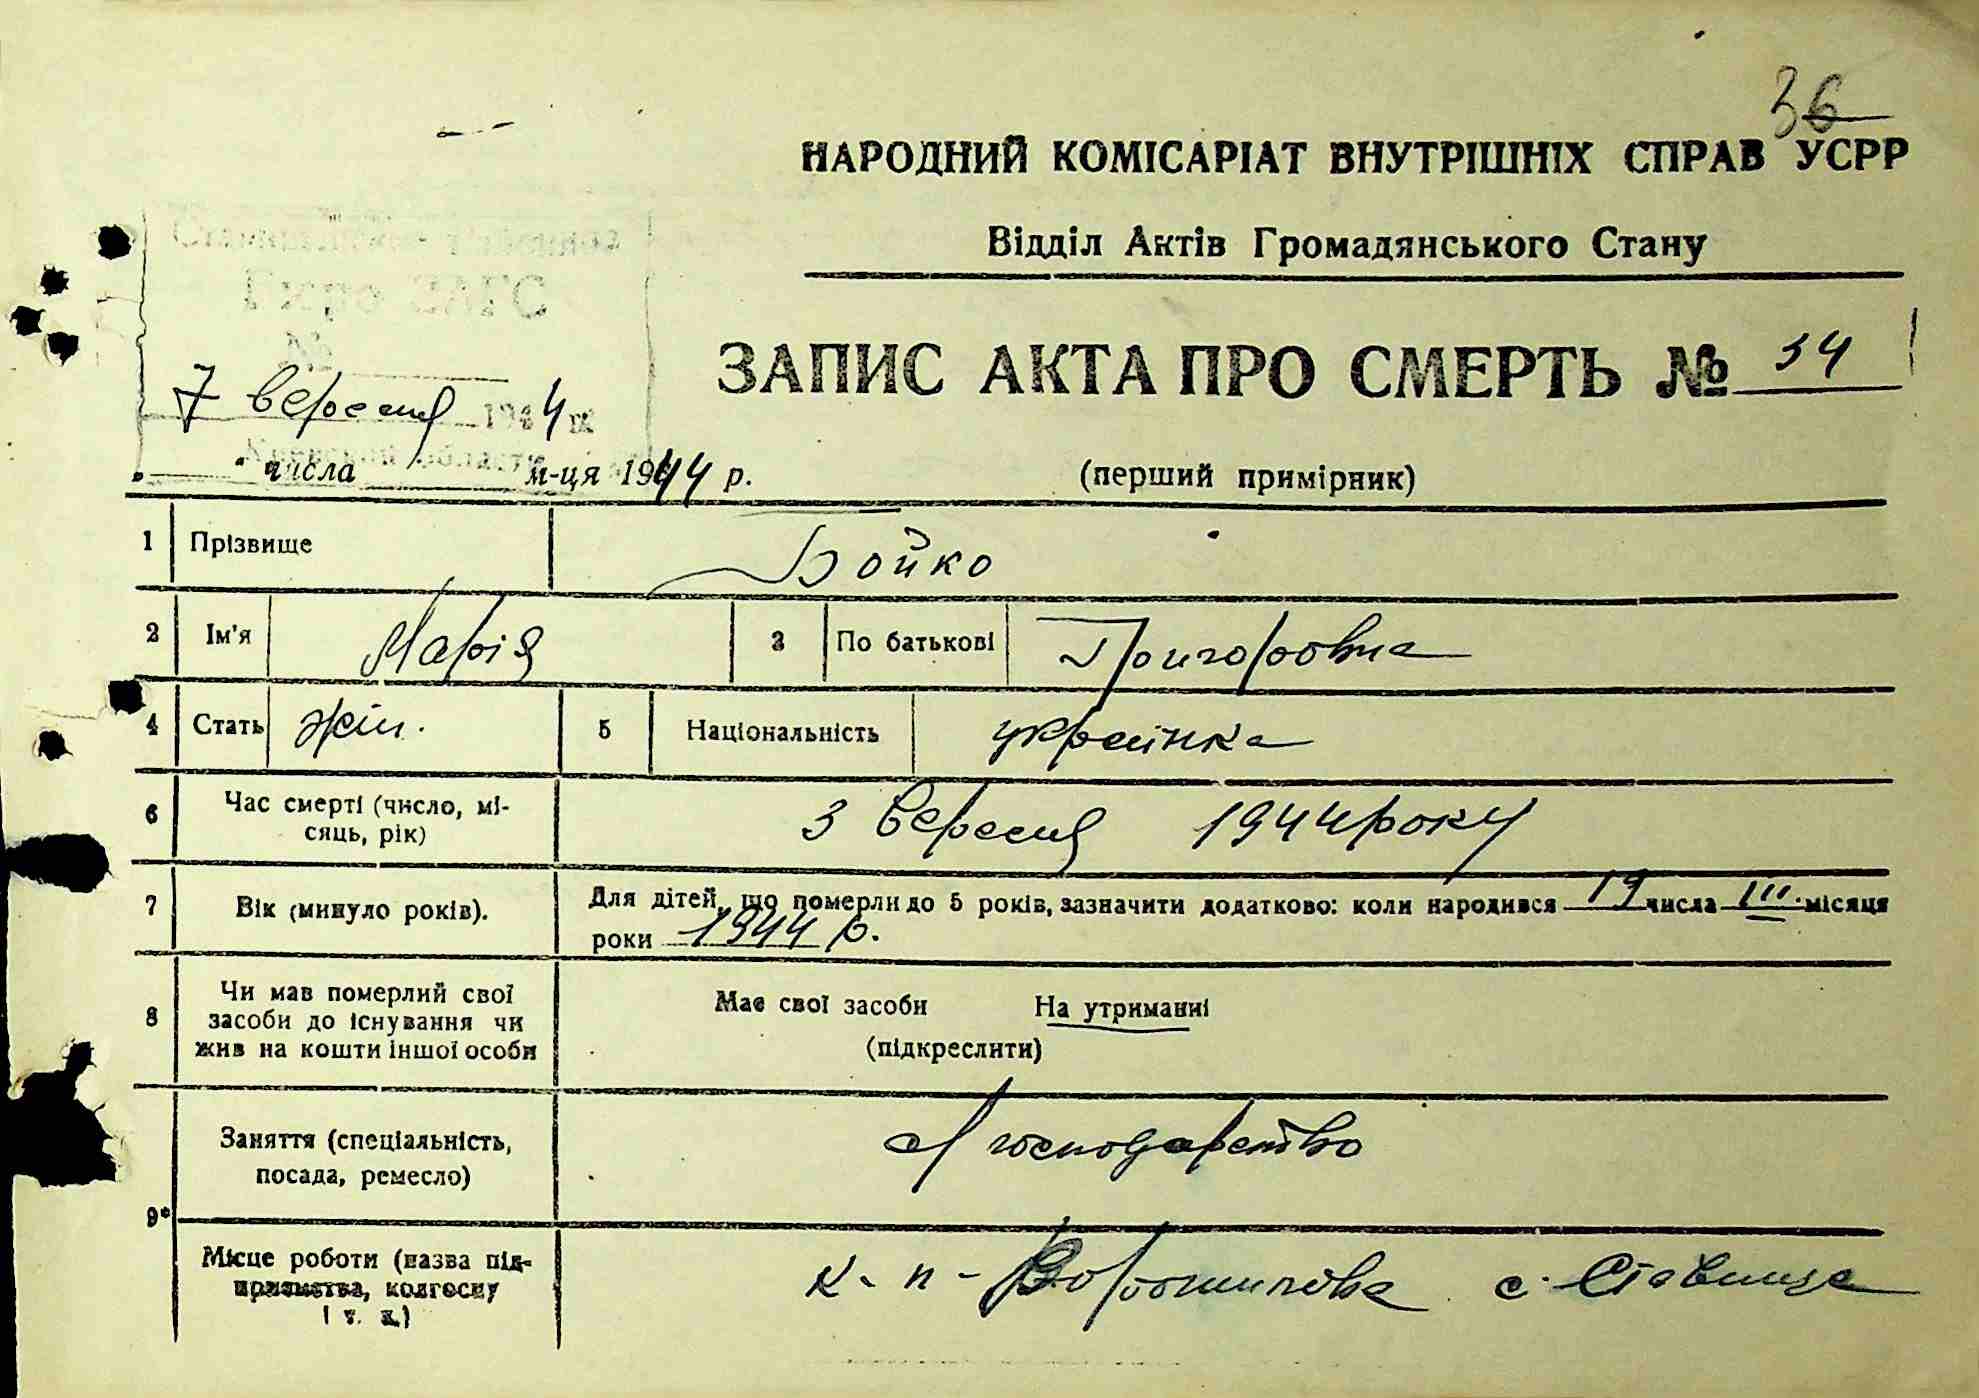 36
НАРОДНИЙ КОМІСАРІАТ ВНУТРІШНІХ СПРАВ УСРР
Відділ Актів Громадянського Стану
Бюро ЗАГС
№
ЗАПИС АКТА ПРО СМЕРТЬ № 34
7 вересня 1944 р.
" " числа м-ця 1944 р.
(перший примірник)
1 Прізвище Бойко
2 Ім'я Марія 3 По батькові Григоровна
4 Стать жін. 5 Національність українка
6 Час смерті (число, мі-
сяць, рік) 3 вересня 1944 року
7 Вік (минуло років). Для дітей, що померли до 5 років, зазначити додатково: коли народився 19 числа III. місяця
роки 1944 р.
8 Чи мав померлий свої
засоби до існування чи
жив на кошти іншої особи
Має свої засоби На утриманні
(підкреслити)
9* Заняття (спеціальність,
посада, ремесло) господарство
Місце роботи (назва під-
приємства, колгоспу
і т. д.) к-п- Ворошилова с. Ставище